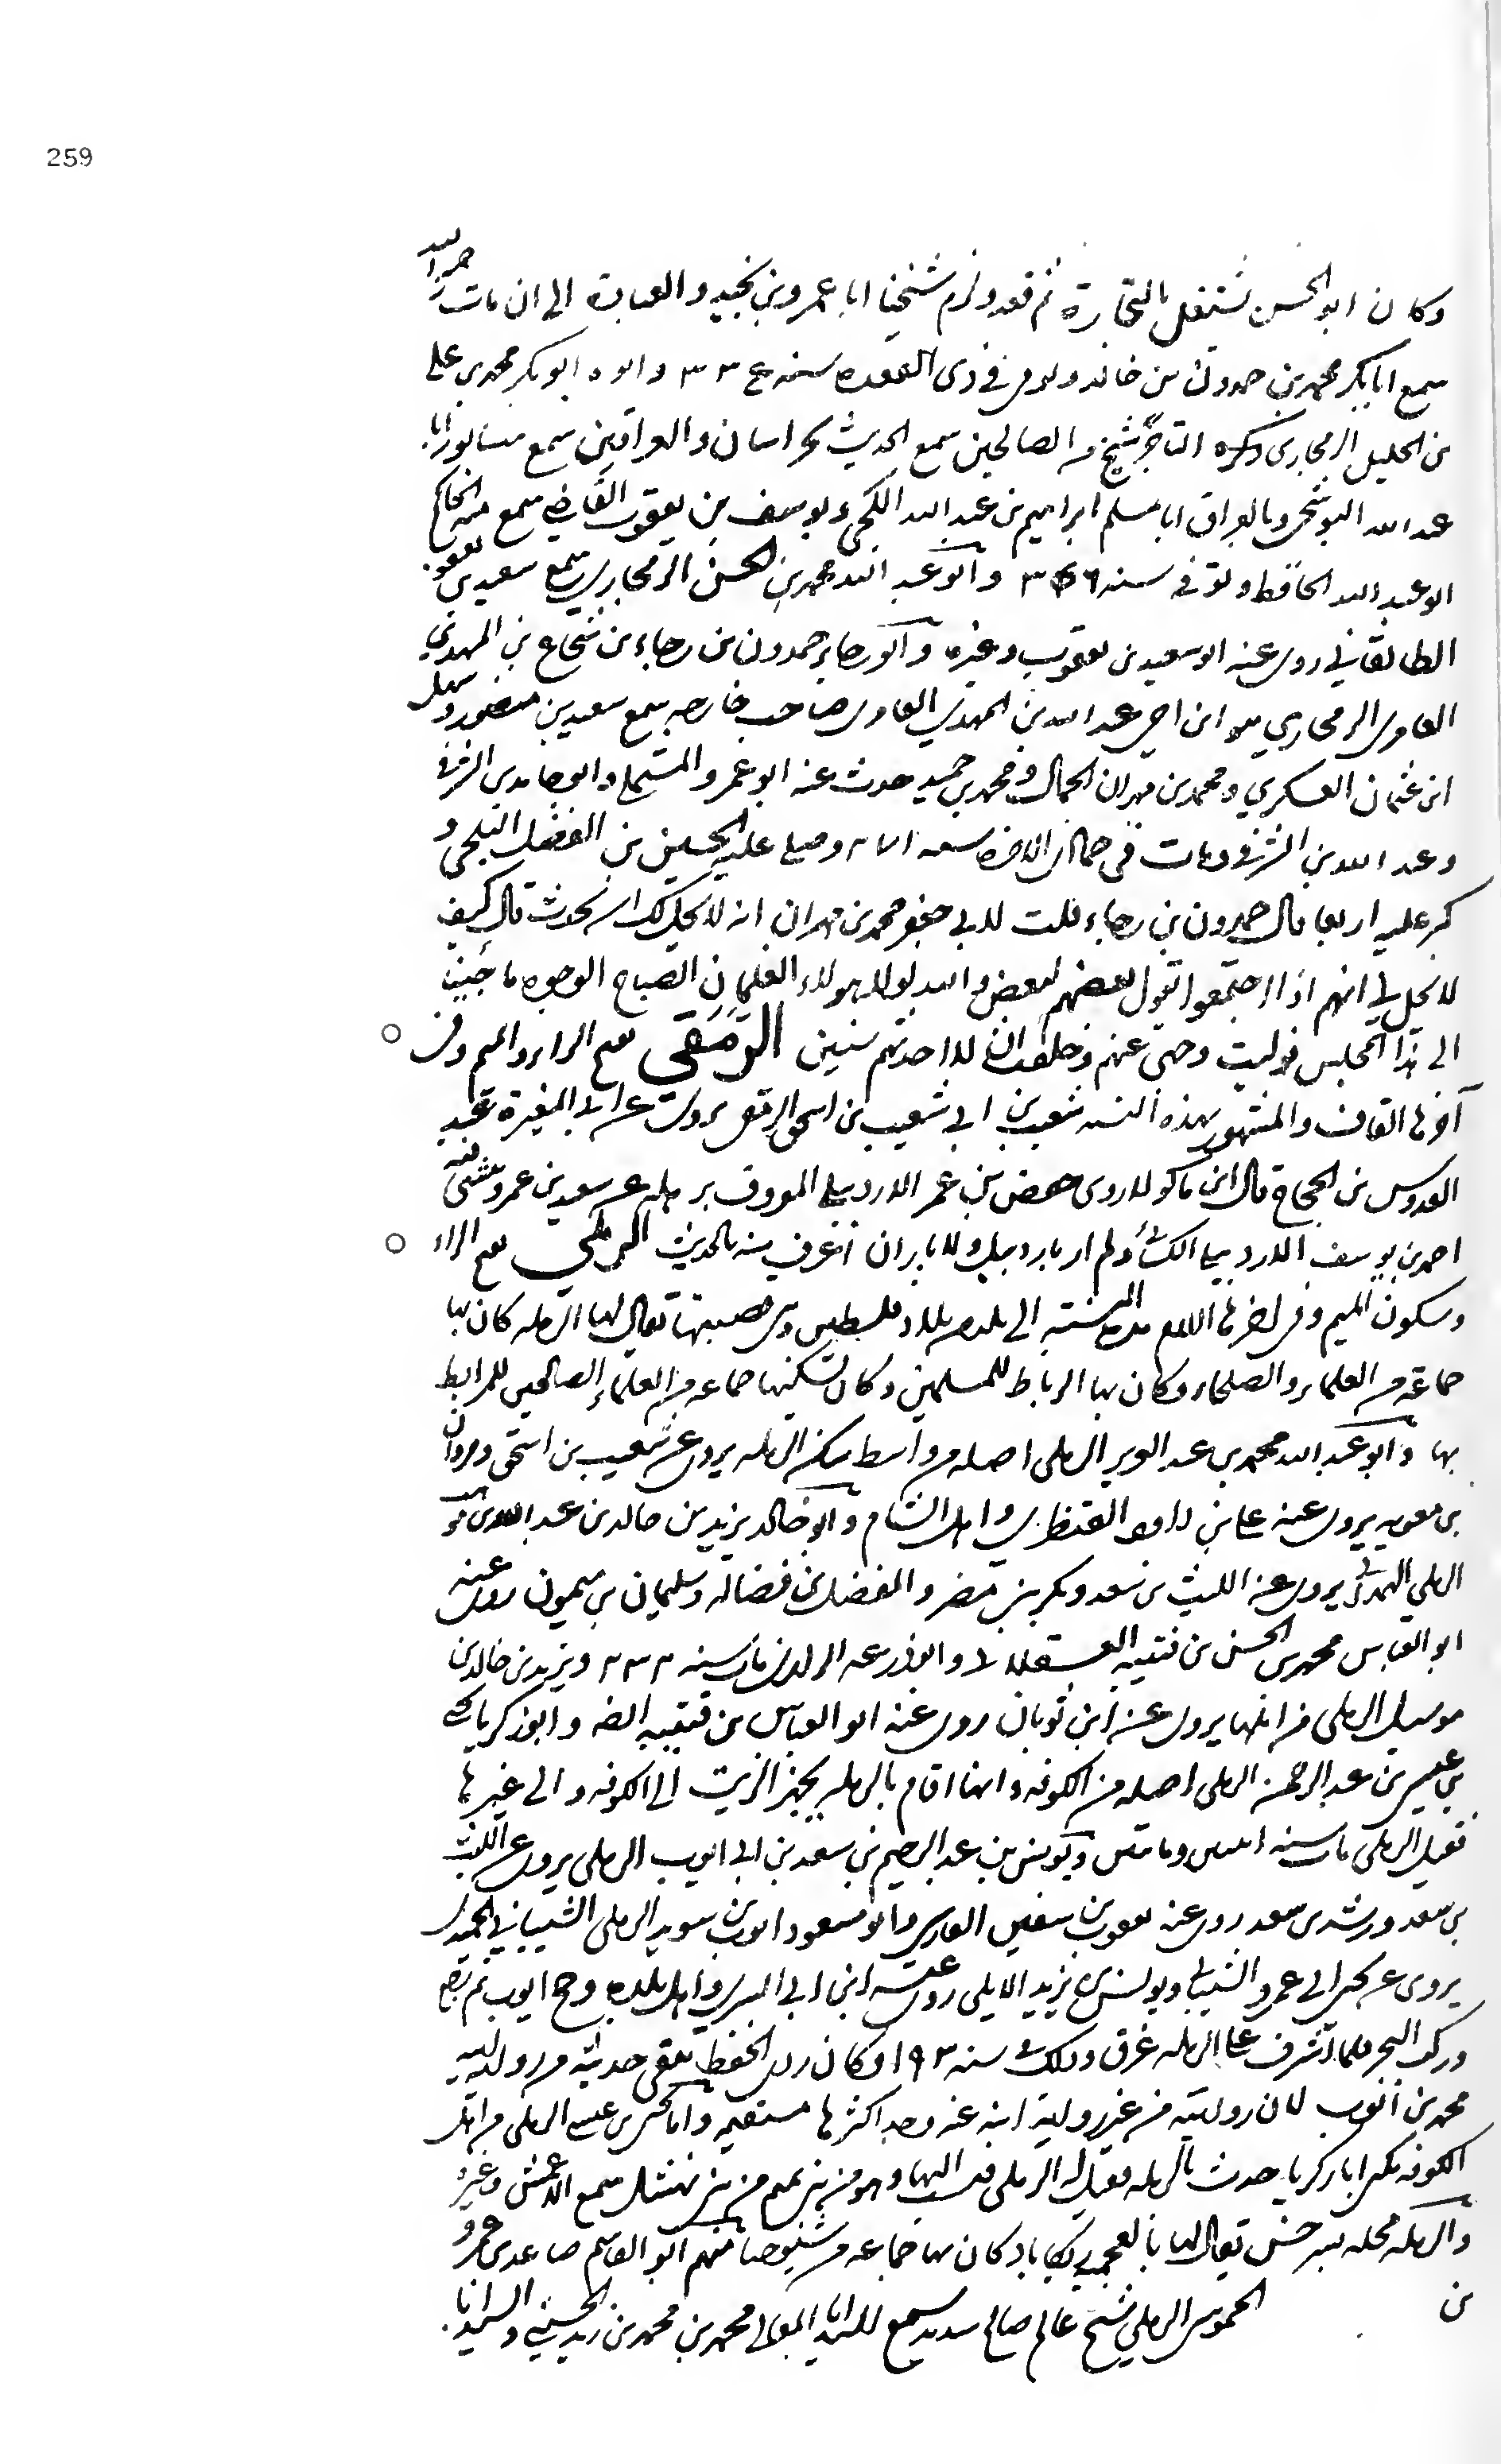 259
وكان ابو الحسن يشتغل بالتجارة ثم قعد ولزم شيخنا ابا عمرو بن نجيد والعبادة الى ان مات رحمه الله
سمع ابا بكر محمد بن حمدون بن خالد وتوفي في ذي القعده سنه ع ٣٣ وابوه ابو بكر محمد بن علي
بن الخليل الرمجاري ذكره التاجر شيخ من الصالحين سمع الحديث بخراسان والعراقين سمع بنيسابور ابا
عبد الله البوشنجي وبالعراق ابا مسلم ابراهيم بن عبد الله الكجي ويوسف بن يعقوب القاضي سمع منه الحاكم
ابو عبد الله الحافظ وتوفي سنه وابو عبد الله محمد بن الحسن الرمجاري سمع سعيد بن يعقوب
الطالقاني روى عنه ابو سعيد بن يعقوب وغيره وابو رجاء حمدون بن رجاء بن شجاع بن المهدي
الفارسي الرمجاري هو ابن اخي عبد الله بن المهدي الفارسي صاحب خارجه سمع سعيد بن منصور وسهل
ابن عثمان العسكري ومحمد بن مهران الجمال ومحمد بن حميد حدث عنه ابو عمرو المستملي وابو حامد بن الشرقي
وعبد الله بن الشرقي ومات في جمادى الاخره سنه وصلى عليه الحسين بن الفضل البجلي و
كبر عليه اربعا قال حمدون بن رجاء قلت لابي جعفر محمد بن مهران انه لا يحل لك ان تحدث قال كيف
لا يحل لي انهم اذا اجتمعوا يقول بعضهم لبعض والله لولا هولاء الغلمان الصباح الوجوه ما جينا
الى هذا المجلس فوليت وجهي عنهم وحلفت ان لا احدثهم سنين الرَّمَقي بفتح الراء والميم وفي
آخرها القاف والمشهور بهذه النسبه شعيب بن ابي شعيب بن اسحق الرمقي يروي عن ابي المغيرة عبد
القدوس بن الحجاج قال ابن ماكولا روى حفص بن عمر الاردبيلي المعروف بـ عن سعيد بن عمرو
احمد بن يوسف الاردبيلي ولم ار باردبيل ولا بايران اعرف منه بالحديث الرملي بفتح الراء
وسكون الميم وفي اخرها اللام هذه النسبة الى بلدة من بلاد فلسطين وهي قصبتها يقال لها الرمله كان بها
جماعة من العلماء والصلحاء وكان بها الرباط للمسلمين وكان يسكنها جماعه من العلماء الصالحين للمرابطة
بها وابو عبد الله محمد بن عبد العزيز الرملي اصله من واسط سكن الرمله يروي عن شعيب بن اسحق ومروان
بن معويه يروي عنه علي بن داود القنطري واهل الشام وابو خالد يزيد بن خالد بن عبد الله بن موهب
الرملي الهمداني يروي عن الليث بن سعد وبكر بن مضر والمفضل بن فضاله وسليمان بن ميمون روى عنه
ابو العباس محمد بن الحسن بن قتيبه العسقلاني وابو زرعه الرازي مات سنه ٢٣٢ ويزيد بن خالد بن
مرسل الرملي من اهلها يروي عن ابن ثوبان روى عنه ابو العباس بن قتيبه ايضا وابو زكريا يحيى
بن عيسى بن عبد الرحمن الرملي اصله من الكوفه وانما اقام بالرمله يجهز الزيت الى الكوفه والى غيرها
فقيل الرملي مات سنه احدى ومائتين ويونس بن عبد الرحيم بن سعد بن ابي ايوب الرملي يروي عن الليث
بن سعد ورشدين بن سعد روى عنه يعقوب بن سفين الفارسي وابو مسعود ايوب بن سويد الرملي الشيباني الحميري
يروي عن يحيى ابي عمرو السيباني ويونس بن يزيد الايلي روى عنه ابن ابي السري واهل بلده وحج ايوب ثم رجع
وركب البحر فلما اشرف على الرمله غرق وذلك في سنه ١٩٣ وكان ردي الحفظ يتقى حديثه من رواية
محمد بن ايوب لان روايته من غير رواية ابنه عنه وجد اكثرها مستقيمه واما يحيى بن عيسى الرملي من اهل
الكوفه يكنى ابا زكريا حدث بالرمله فقيل له الرملي فنسب اليها وهو من بني تميم من بني نهشل سمع الاعمش وغيره
والرمله محله بسرخس يقال لها بالعجمي ريكاباد كان بها جماعه من شيوخنا منهم ابو القاسم صاعد بن عمرو
الحموي الرملي شيخ عالم صالح سديد سمع السيد ابا المعالي محمد بن محمد بن زيد الحسيني والسيد ابا
بن